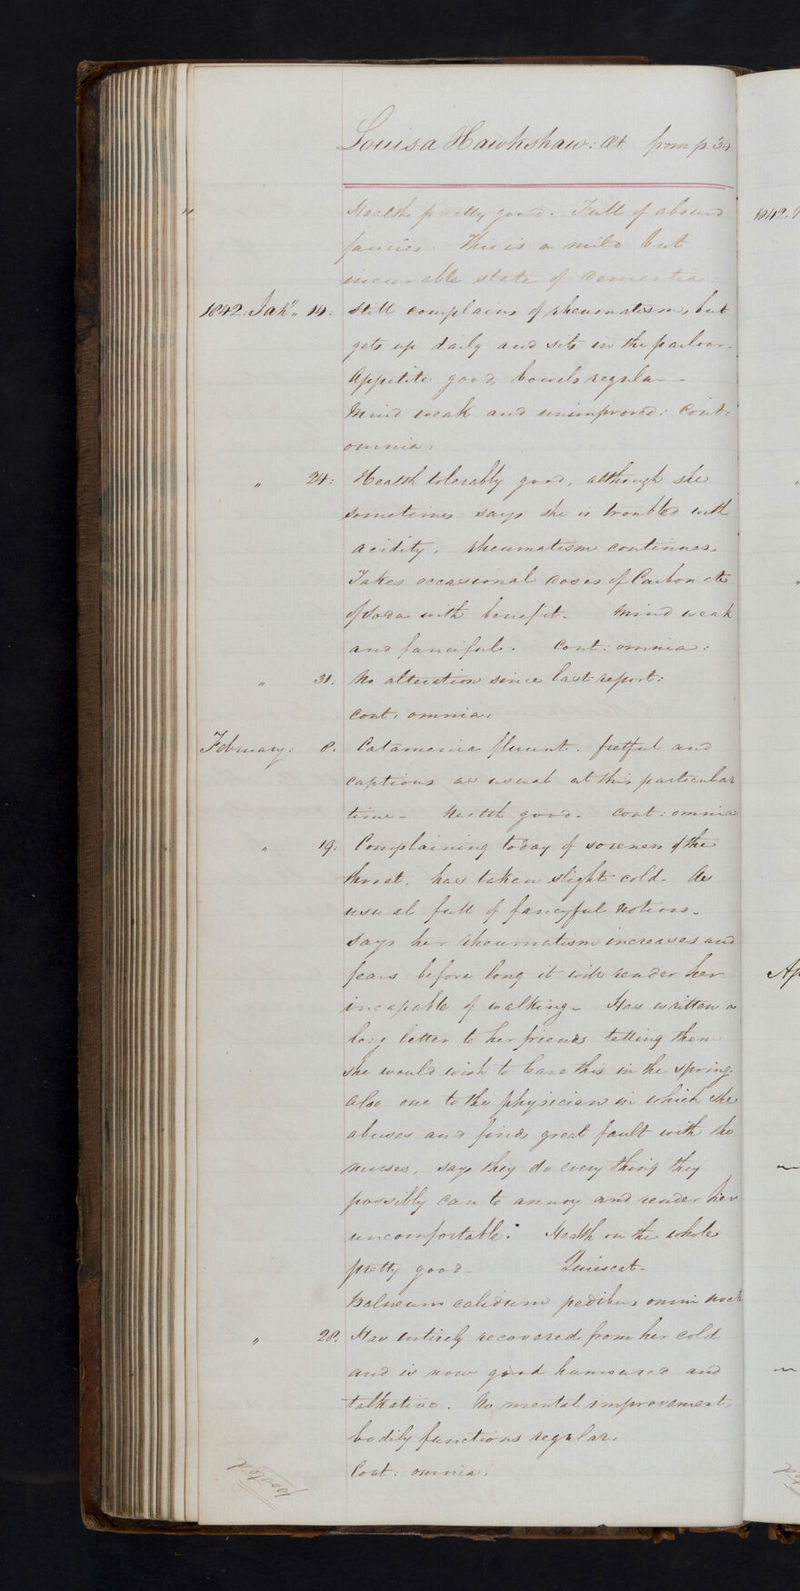 Louisa Hawkshaw: at from p. 34
Health pretty good. Full of absurd
fancies. This is a mild but
incurable state of dementia.
1842. Jany. 14: Still complains of rheumatism, but
gets up daily and sits in the parlour.
Appetite good, bowels regular
Mind weak and unimproved: Cont:
omnia:
" 24: Health tolerably good, although she
sometimes says she is troubled with
acidity. Rheumatism continues.
Takes occasional doses of Carbonate
of soda with benefit. Mind weak
and fanciful. Cont: omnia:
" 31. No alteration since last report:
Cont: omnia:
February: 8. Catamenia fluunt. fretful and
captious as usual at this particular
time. Health good. Cont: omnia
" 19: Complaining today of soreness of the
throat. has taken slight cold. As
usual full of fancyful notions.
Says her rheumatism increases and
fears before long it will render her
incapable of walking. Has written a
long letter to her friends telling them
she would wish to leave this in the spring.
also one to the physician in which she
abuses and finds great fault with the
nurses, says they do every thing they
possibly can to annoy and render her
uncomfortable. Health on the whole
pretty good.
Balneum calidum pedibus omni noct
" 28. Has entirely recovered from her cold
and is now good humoured and
talkative. No mental improvement.
bodily functions regular.
Cont: omnia:
1842.
Ap